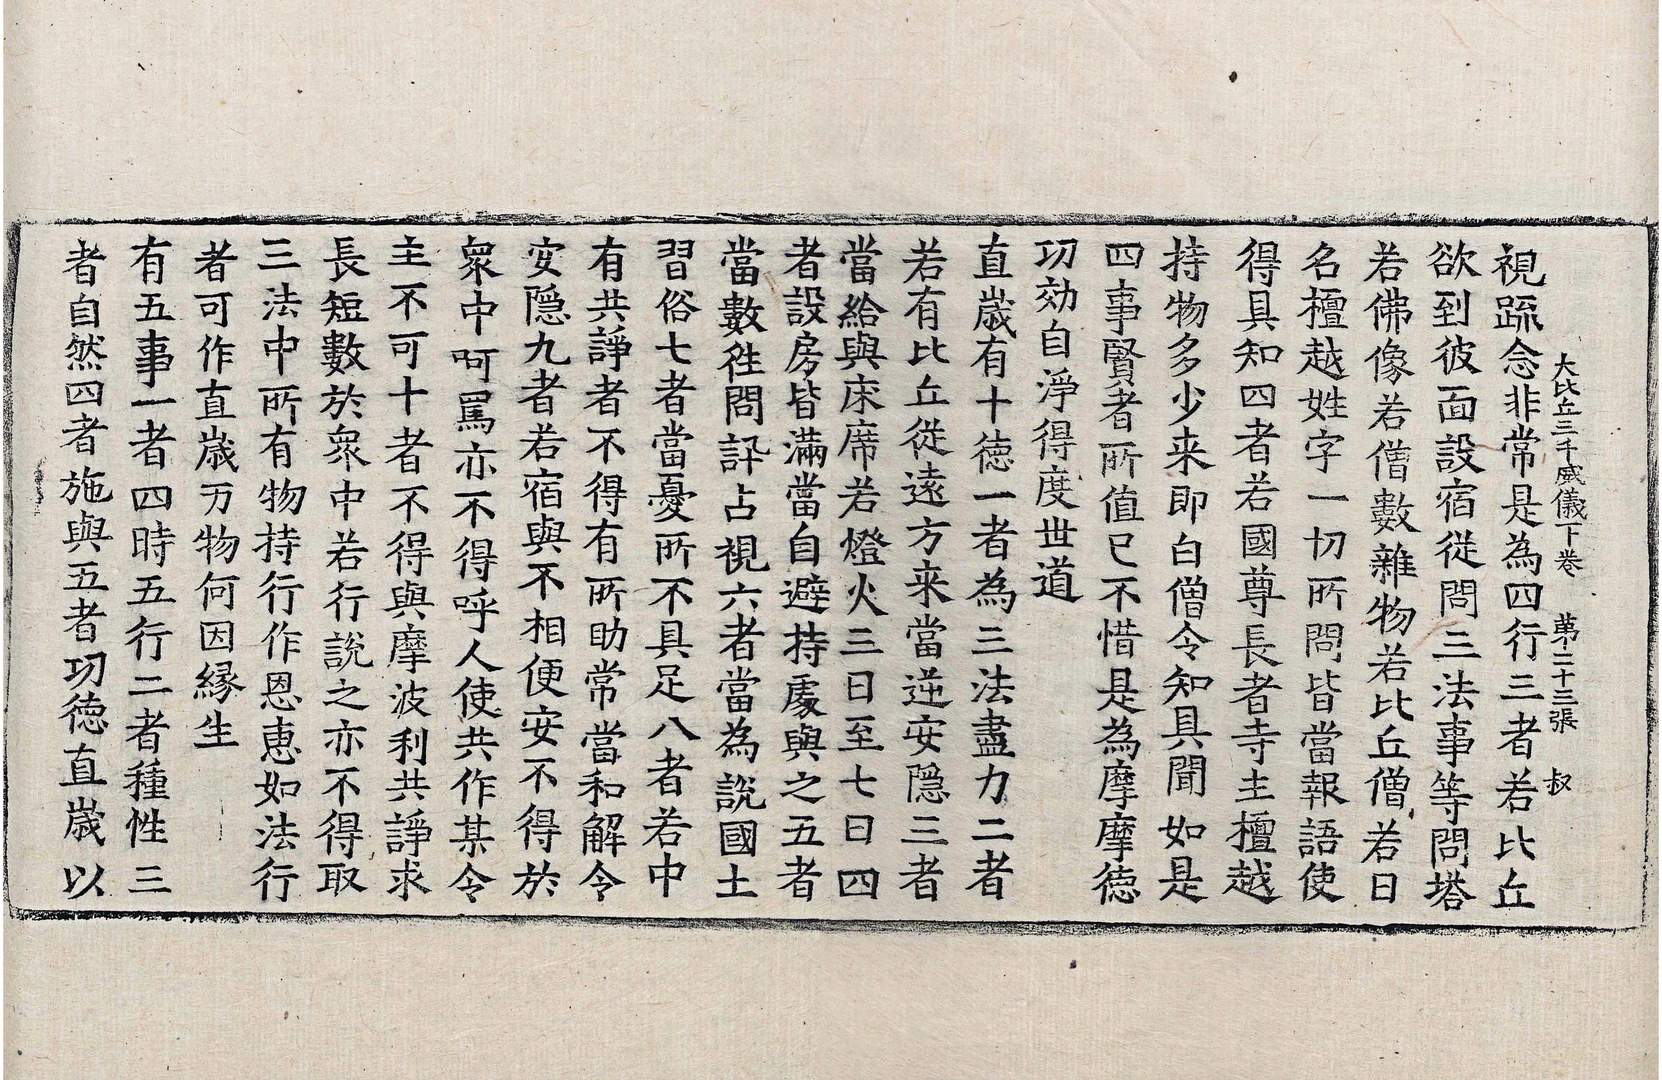 大比丘三千威儀下卷 第二十三張 叔
視疏念非常是為四行三者若比丘
欲到彼面設宿從問三法事等問塔
若佛像若僧數雜物若比丘僧若日
名檀越姓字一切所問皆當報語使
得具知四者若國尊長者寺主檀越
持物多少来即白僧令知具聞如是
四事賢者所值已不惜是為摩摩德
功効自淨得度世道
直歲有十德一者為三法盡力二者
若有比丘從遠方来當逆安隱三者
當給與床席若燈火三日至七日四
者設房皆滿當自避持處與之五者
當數徃問訊占視六者當為說國土
習俗七者當憂所不具足八者若中
有共諍者不得有所助常當和解令
安隱九者若宿與不相便安不得於
衆中呵罵亦不得呼人使共作某令
主不可十者不得與摩波利共諍求
長短數於衆中若行說之亦不得取
三法中所有物持行作恩惠如法行
者可作直歲万物何因緣生
有五事一者四時五行二者種性三
者自然四者施與五者功德直歲以